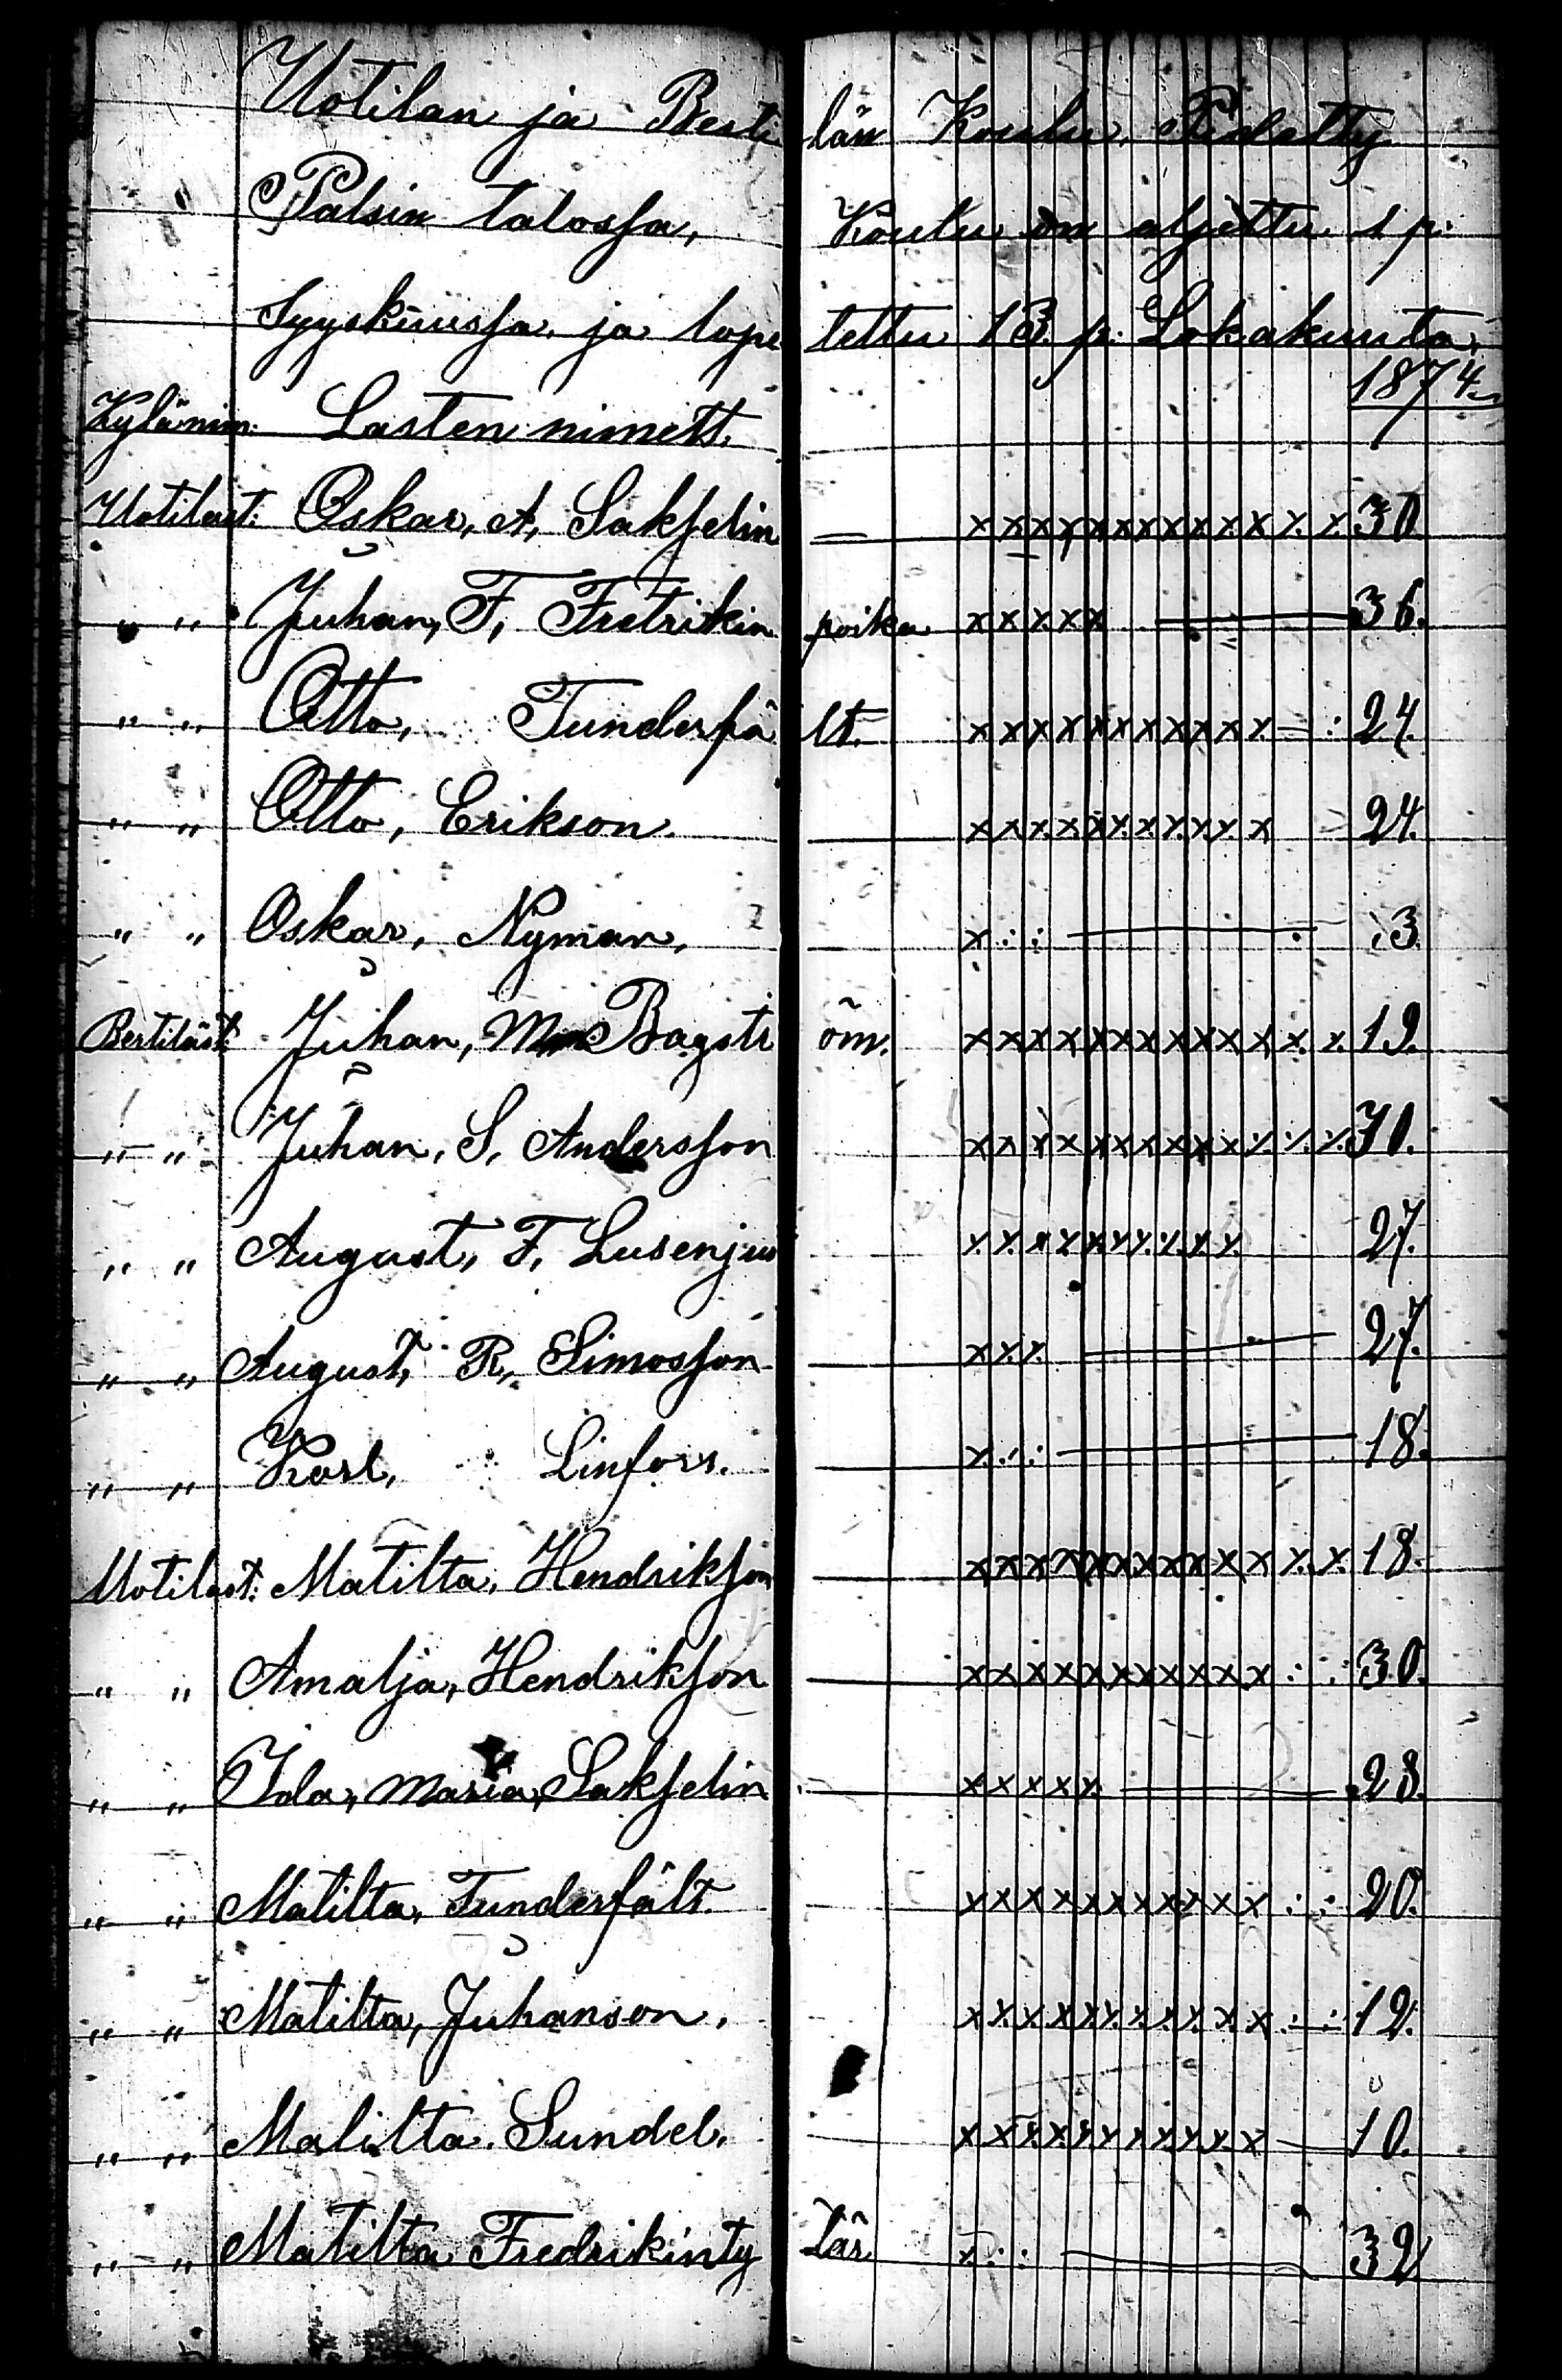 Uotilan ja Bertilän Koulu, Pidetty
Palsin talossa, Koulu on aljettu 1 p:
Syyskuussa, ja lopetettu 13. p: Lokakuuta,
1874.
Kylä nim: Lasten nimett.
Uotilast: Oskar, A, Sakselin — x x x x x x x x x x x x x 30
" " Juhan, F, Fretrikin poika x x x x x — 36.
" " Otto, Tunderfält. x x x x x x x x x x x — : 24.
" " Otto, Erikson. x x x x x x x x x x x 24.
" " Oskar, Nyman, x : : — 3
Bertiläst: Juhan, M Bagström. x x x x x x x x x x x x x 19.
" " Juhan, S, Andersson x x x x x x x x x x x x x 30.
" " August, F, Lusenjus x x x x x x x x x x 27.
" " August, R, Simosson x x x — 27.
" " Karl, Linfors. x : : — 18.
Uotilast: Matilta, Hendrikson x x x x x x x x x x x x x 18.
" " Amalja, Hendrikson x x x x x x x x x x x : : 30.
" " Ida, Maria, Sakselin x x x x x — 28.
" " Matilta, Tunderfält. x x x x x x x x x x x : : 20.
" " Matilta, Juhanson, x x x x x x x x x x x : : 12.
" " Matilta. Sundel. x x x x x x x x x x x — 10.
" " Matilta Fredrikintytär x : : — 32